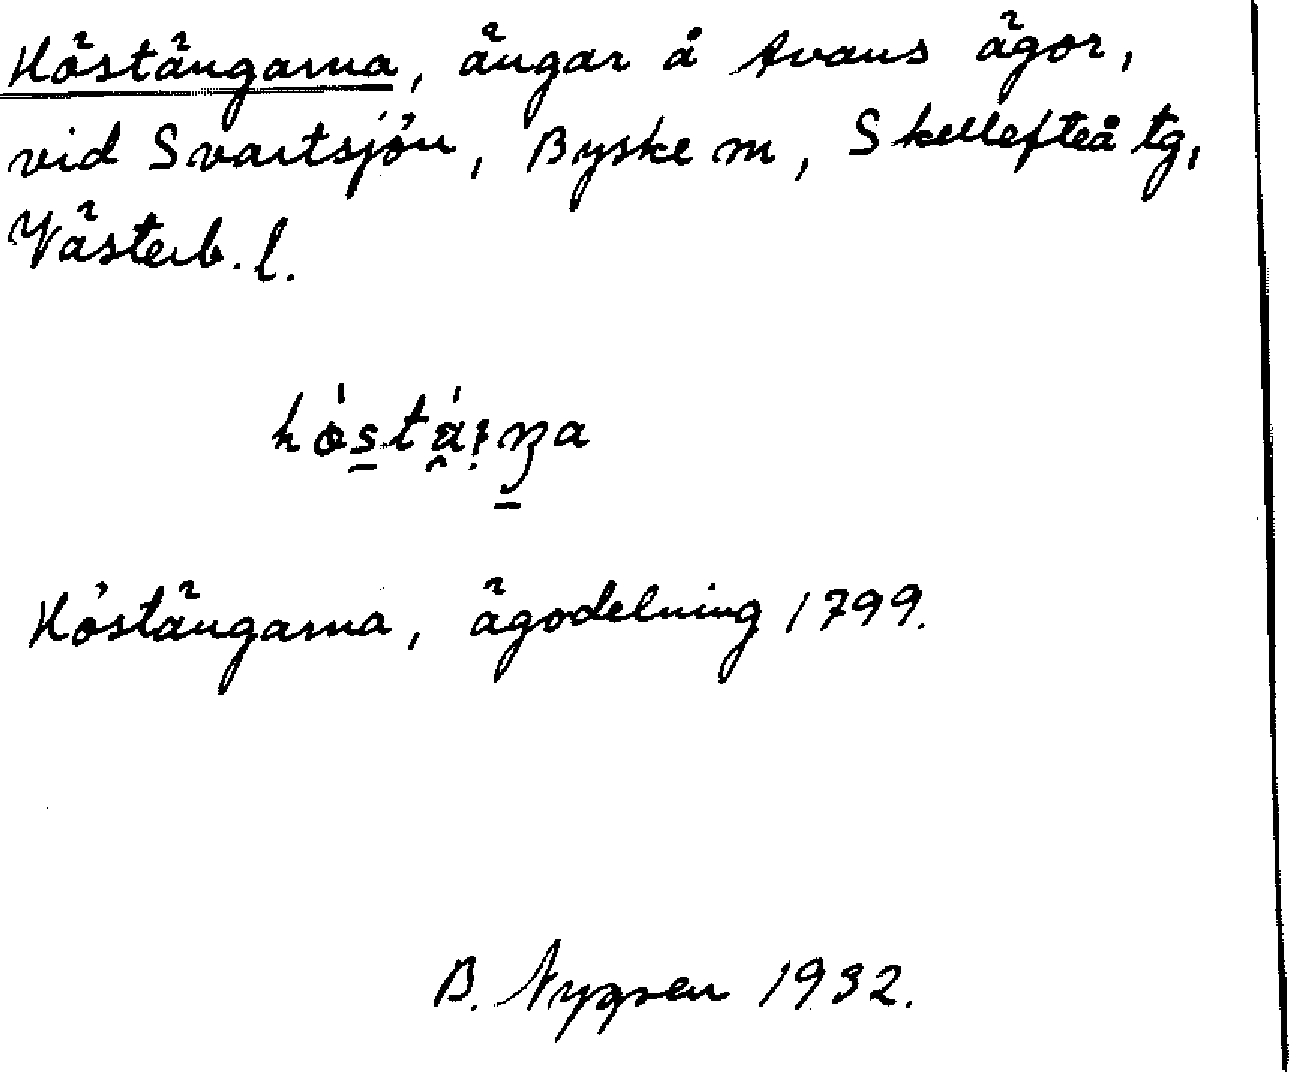 Höstängarna, ängar å Avans ägor,
vid Svartsjön, Byske m, Skellefteå tg,
Västerb. l.
Höstängarna, ägodelning 1799.
B. 1932.